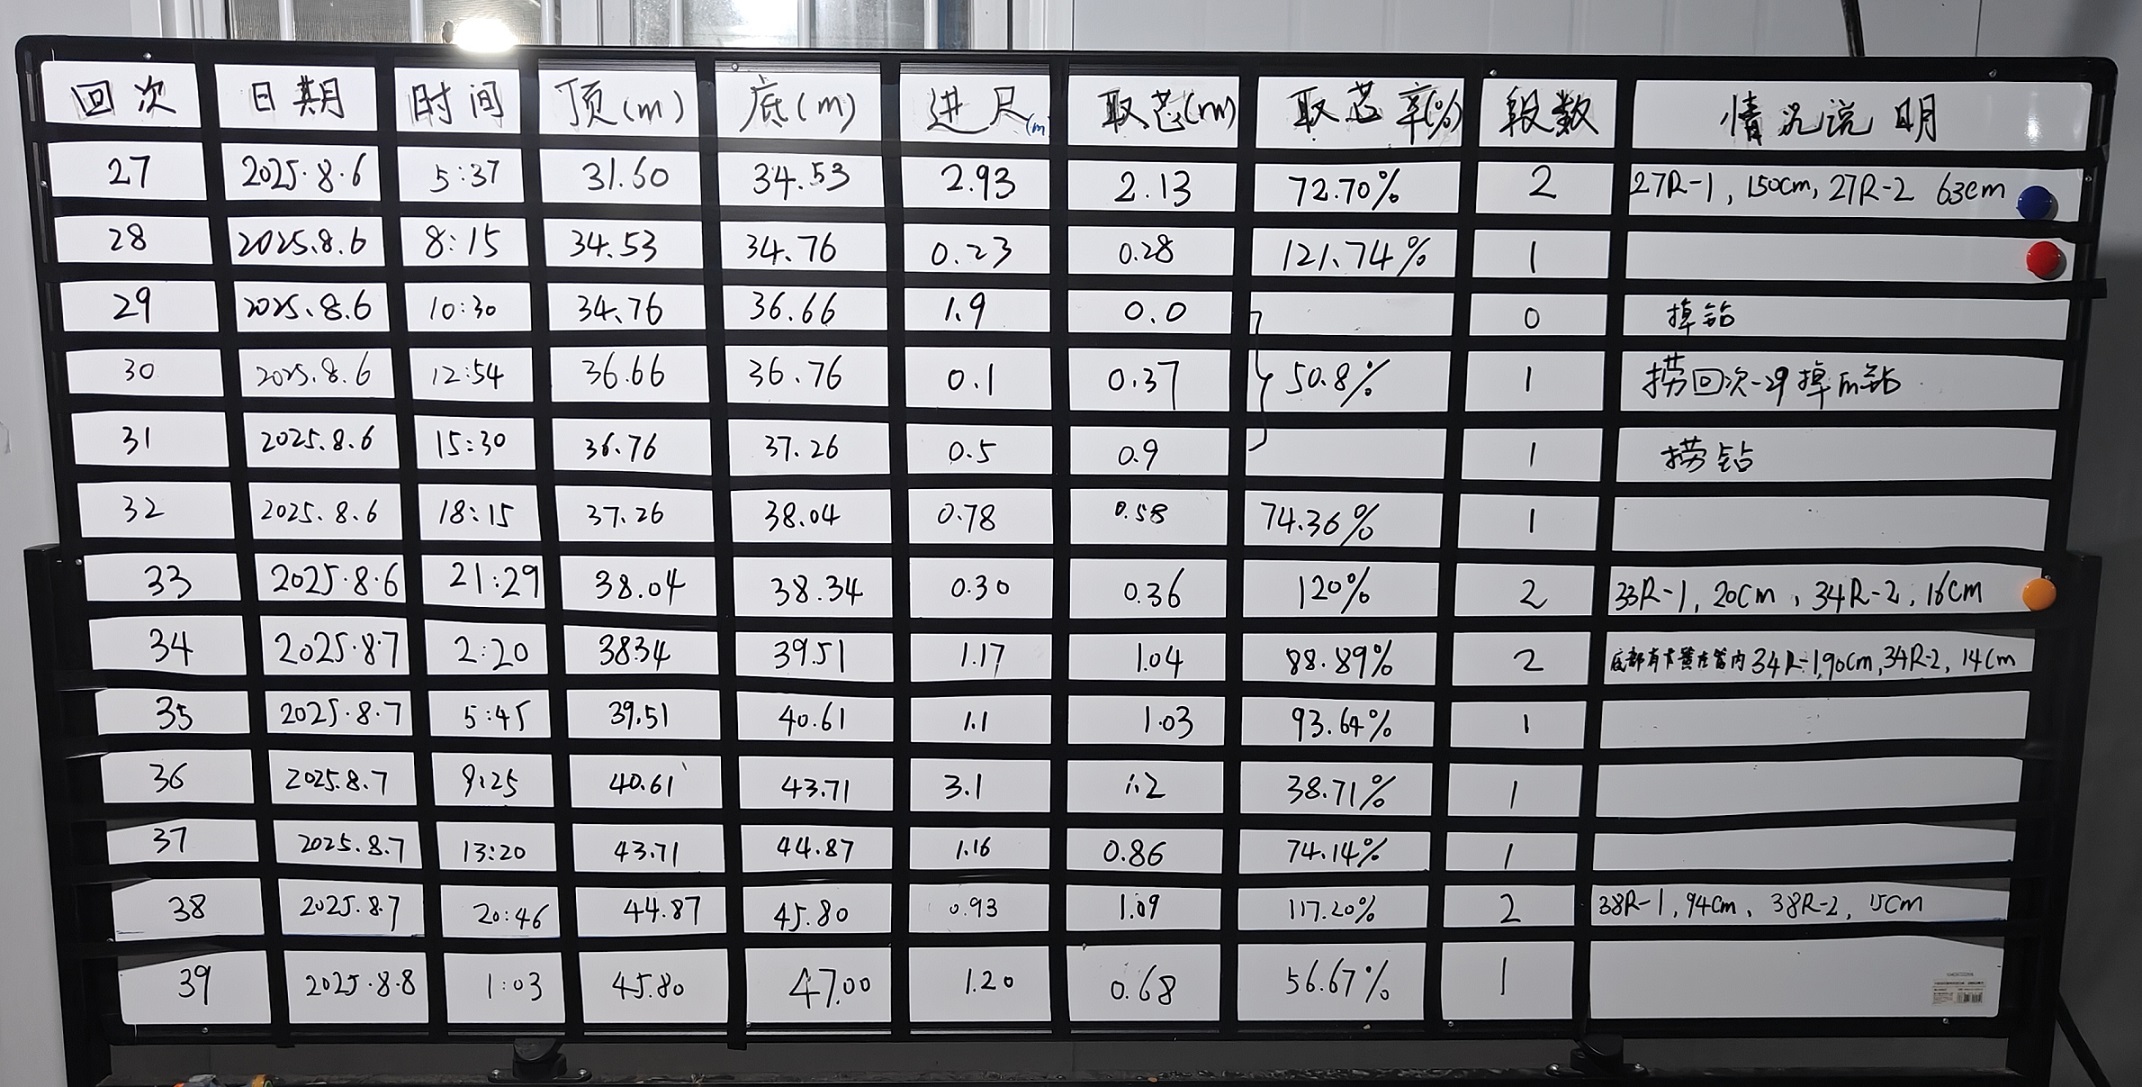 回次 日期 时间 顶(m) 底(m) 进尺(m) 取芯(m) 取芯率(%) 段数 情况说明
27 2025.8.6 5:37 31.60 34.53 2.93 2.13 72.70% 2 27R-1, 150cm, 27R-2 63cm
28 2025.8.6 8:15 34.53 34.76 0.23 0.28 121.74% 1
29 2025.8.6 10:30 34.76 36.66 1.9 0.0 0 掉钻
30 2025.8.6 12:54 36.66 36.76 0.1 0.37 50.8% 1 捞回次-29掉的钻
31 2025.8.6 15:30 36.76 37.26 0.5 0.9 1 捞钻
32 2025.8.6 18:15 37.26 38.04 0.78 0.58 74.36% 1
33 2025.8.6 21:29 38.04 38.34 0.30 0.36 120% 2 33R-1, 20cm, 34R-2, 16cm
34 2025.8.7 2:20 3834 39.51 1.17 1.04 88.89% 2 底部有卡簧在管内 34R-1,90cm,34R-2, 14cm
35 2025.8.7 5:45 39.51 40.61 1.1 1.03 93.64% 1
36 2025.8.7 9:25 40.61 43.71 3.1 1.2 38.71% 1
37 2025.8.7 13:20 43.71 44.87 1.16 0.86 74.14% 1
38 2025.8.7 20:46 44.87 45.80 0.93 1.09 117.20% 2 38R-1, 94cm, 38R-2, 15cm
39 2025.8.8 1:03 45.80 47.00 1.20 0.68 56.67% 1